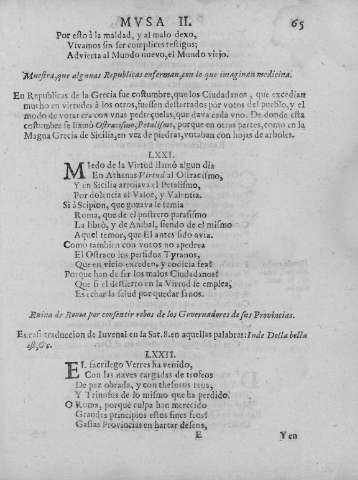 MVSA II. 65
Por esto à la maldad, y al malo dexo,
Vivamos sin ser complices testigos;
Advierta al Mundo nuevo, el Mundo viejo.
Muestra, que algunas Republicas enferman, con lo que imaginan medicina.
En Republicas de la Grecia fue costumbre, que los Ciudadanos, que excedian
mucho en virtudes à los otros, fuessen desterrados por votos del pueblo, y el
modo de votar era con vnas pedrçuelas, que dava cada vno. De donde esta
costumbre se llamò Ostracismo, Petalismo, porque en otras partes, como en la
Magna Grecia de Sicilia, en vez de piedras, votaban con hojas de arboles.
LXXI.
MIedo de la Virtud llamò algun dia
En Athenas Virtud al Ostracismo,
Y en Sicilia arrojava el Petalismo,
Por dolencia al Valor, y Valentia.
Si à Scipion, que gozava le temia
Roma, que de el postrero parasismo
La librò, y de Anibal, siendo de el mismo
Aquel temor, que El antes sido avia.
Como tambien con votos no apedrea
El Ostraco los perfidos Tyranos,
Que en vicio exceden, y codicia fea?
Porque han de ser los malos Ciudadanos?
Que si el destierro en la Virtud se emplea,
Es echar la salud por quedar sanos.
Ruina de Roma por consentir robos de los Governadores de sus Provincias.
Es casi traduccion de Iuvenal en la Sat. 8. en aquellas palabras: Inde Dolla bella
est, &c.
LXXII.
EL sacrilego Verres ha venido,
Con las naves cargadas de trofeos
De paz obrada, y con thesoros reos,
Y Triunfos de lo mismo que ha perdido.
O Roma, porquè culpa han merecido
Grandes principios estos fines feos?
Gastas Provincias en hartar deseos,
E Y en